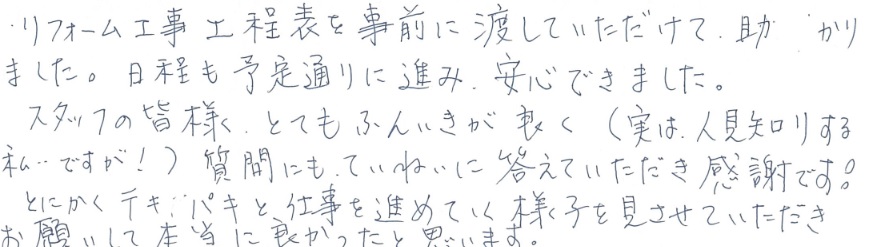 ・リフォーム工事 工程表を事前に渡していただけて、助かり
ました。日程も予定通りに進み、安心できました。
スタッフの皆様、とてもふんいきが良く（実は、人見知りする
私…ですが！）質問にも、ていねいに答えていただき感謝です。
とにかくテキパキと仕事を進めていく様子を見させていただき
お願いして本当に良かったと思います。